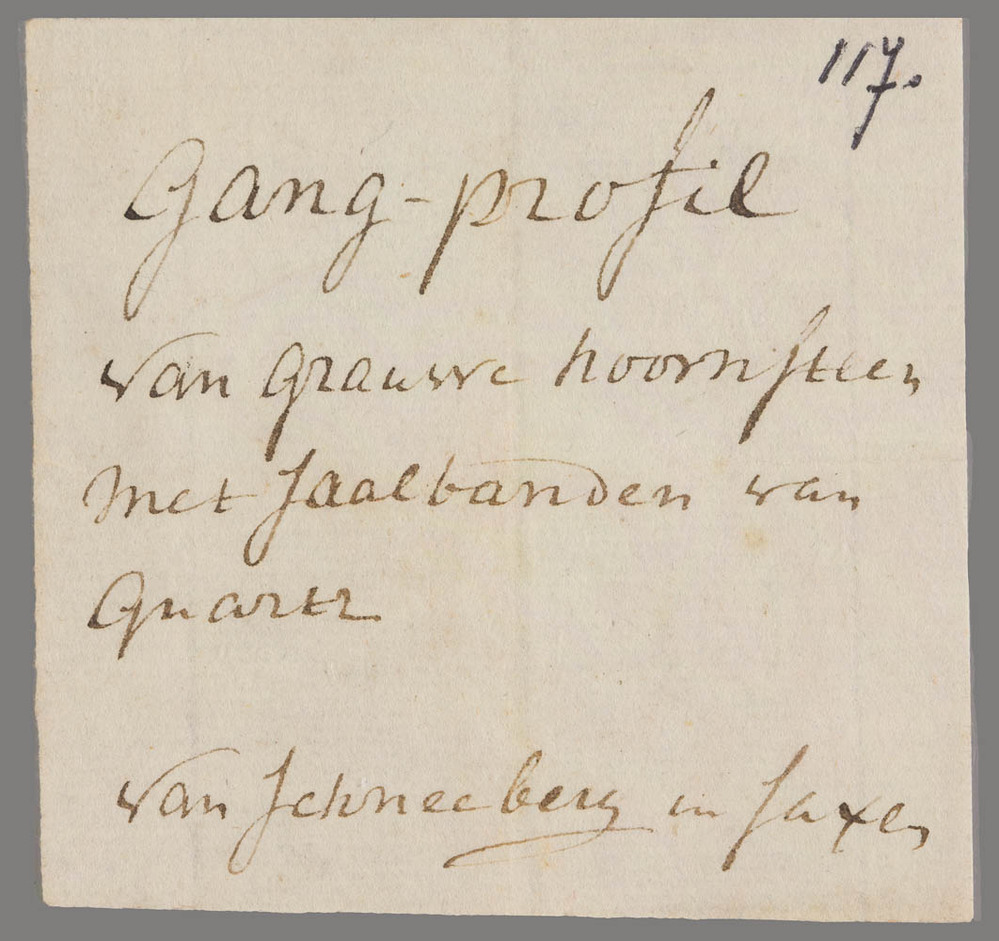 117.
Gang-profil
van grauwe hoornsteen
met saalbanden van
Quartz
van Schneeberg in Saxen